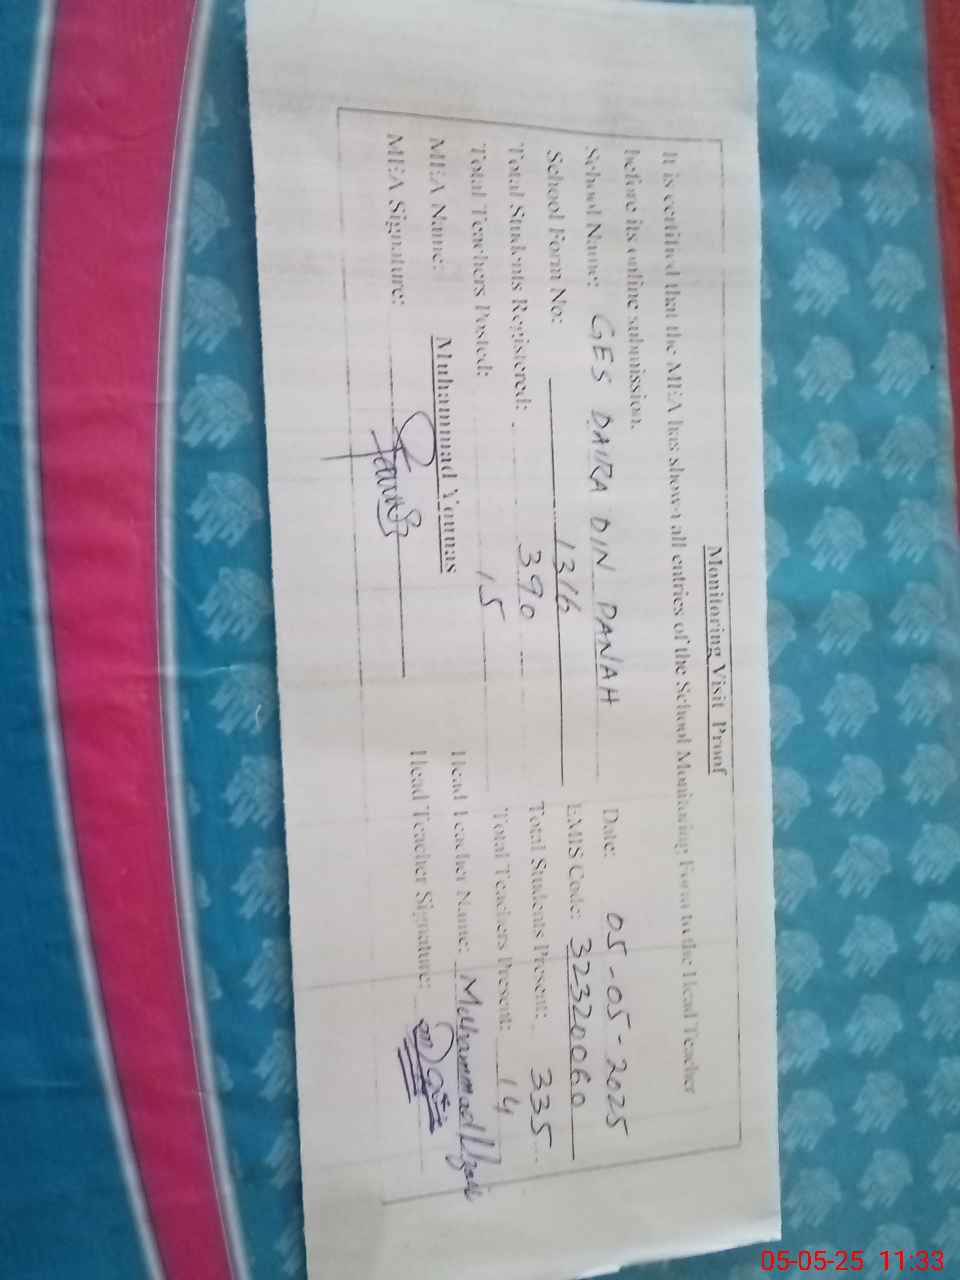 Monitoring Visit Proof
It is certified that the MEA has shown all entries of the School Monitoring Form to the Head Teacher
before its online submission.
School Name: GES DAIRA DIN PANAH Date: 05-05-2025
School Form No: 1316 EMIS Code: 32320060
Total Students Registered: 390 Total Students Present: 335
Total Teachers Posted: 15 Total Teachers Present: 14
MEA Name: Muhammad Younas Head Teacher Name: Muhammad
MEA Signature: Head Teacher Signature:
05-05-25 11:33